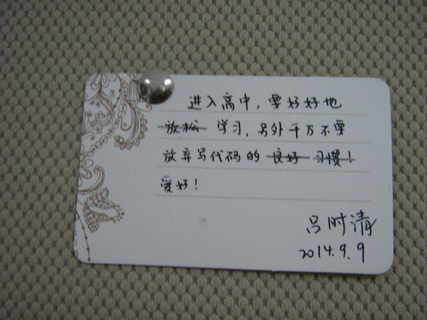 进入高中，要好好地
放松 学习，另外千万不要
放弃写代码的 良好 习惯！
爱好！
吕时清
2014.9.9